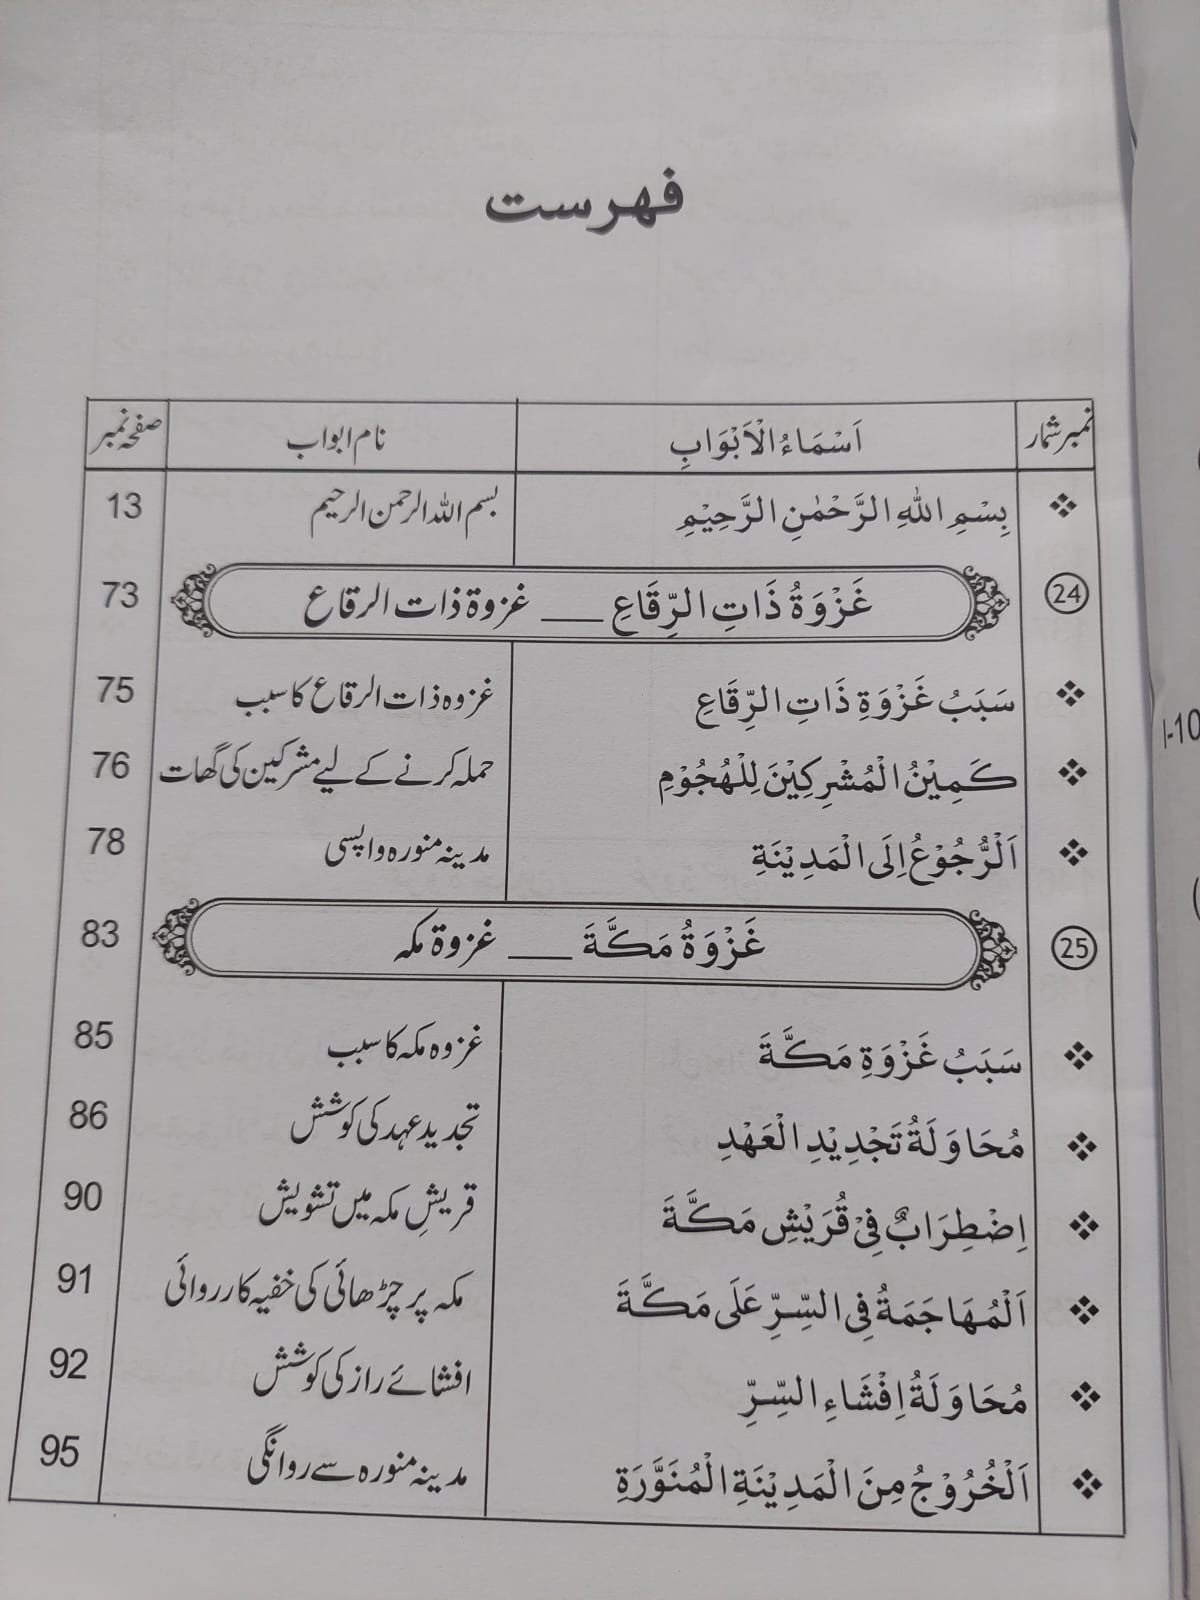 فهرست
نمبر شمار اَسْمَاءُ الْاَبْوَابِ نام ابواب صفحہ نمبر
❖ بِسْمِ اللّٰهِ الرَّحْمٰنِ الرَّحِيْمِ بسم اللہ الرحمن الرحیم 13
24 غَزْوَةُ ذَاتِ الرِّقَاعِ ___ غزوۃ ذات الرقاع 73
❖ سَبَبُ غَزْوَةِ ذَاتِ الرِّقَاعِ غزوہ ذات الرقاع کا سبب 75
❖ كَمِيْنُ الْمُشْرِكِيْنَ لِلْهُجُوْمِ حملہ کرنے کے لیے مشرکین کی گھات 76
❖ اَلرُّجُوْعُ اِلَى الْمَدِيْنَةِ مدینہ منورہ واپسی 78
25 غَزْوَةُ مَكَّةَ ___ غزوۃ مکہ 83
❖ سَبَبُ غَزْوَةِ مَكَّةَ غزوہ مکہ کا سبب 85
❖ مُحَاوَلَةُ تَجْدِيْدِ الْعَهْدِ تجدید عہد کی کوشش 86
❖ اِضْطِرَابٌ فِيْ قُرَيْشِ مَكَّةَ قریشِ مکہ میں تشویش 90
❖ اَلْمُهَاجَمَةُ فِي السِّرِّ عَلَى مَكَّةَ مکہ پر چڑھائی کی خفیہ کارروائی 91
❖ مُحَاوَلَةُ اِفْشَاءِ السِّرِّ افشائے راز کی کوشش 92
❖ اَلْخُرُوْجُ مِنَ الْمَدِيْنَةِ الْمُنَوَّرَةِ مدینہ منورہ سے روانگی 95